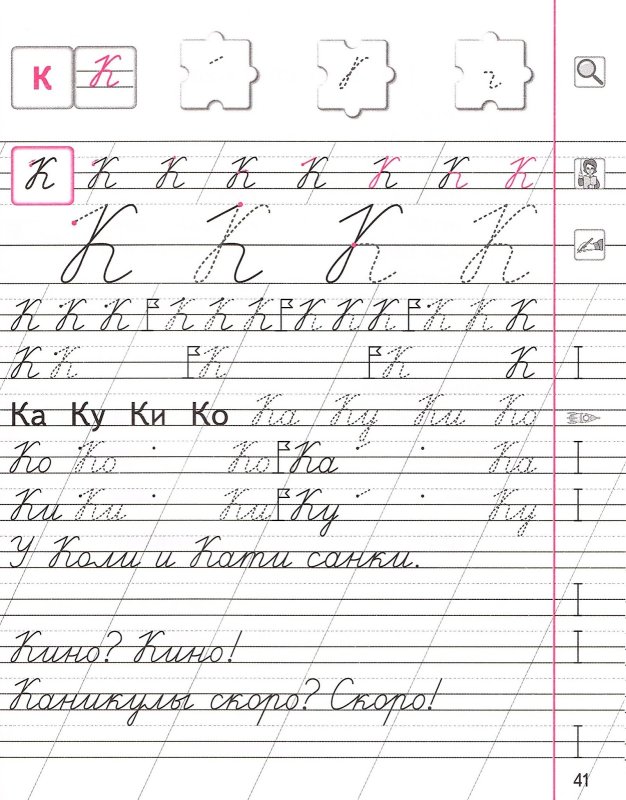 К К
К К К К К К К К
К К К К
К К К К К К К К К К К К
К К К К К
Ка Ку Ки Ко Ка Ку Ки Ко
Ко Ко Ко Ка Ка
Ки Ки Ки Ку Ку
У Коли и Кати санки.
Кино? Кино!
Каникулы скоро? Скоро!
41